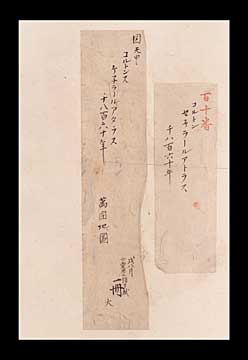 百十番
コルトン
セネラールアトラス
千八百六十年
因天甲
コルトンス
ケネラールアタラス
千八百六十年
萬国地圖
戌八月
一冊
大